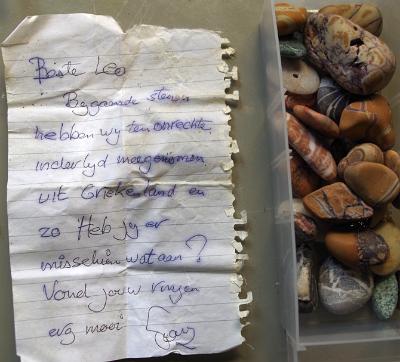 Beste Leo
Bijgaande stenen
hebben wij ten onrechte
indertijd meegenomen
uit Griekenland en
zo Heb jij er
misschien wat aan?
Vond jouw ringen
erg mooi